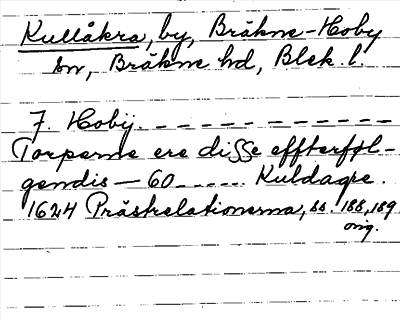 Kullåkra, by, Bräkne-Hoby
sn, Bräkne hd, Blek. l.
J. Hobÿ. — — — — — — — — — — —
Torperne ere disse effterføl-
gendis — 60 — — — — — Kuldagre.
1624 Prästrelationerna, ss. 188, 189
orig.